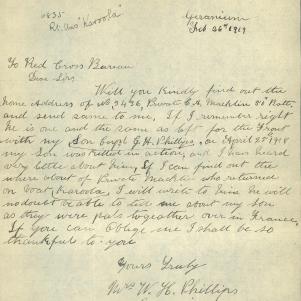 Geranium
Feb 26th 1919
To Red Cross Bureau
Dear Sirs
Will you kindly find out the
home address of No 3436, Private E A Macklin 50 Battn,
and send same to me, If I remember right
he is one and the same as left for the Front
with my Son Corpl G. H. Phillips, on April 25th 1918
my Son was killed in action, and I have heard
very little about him, If I can find out the
where about of Private Macklin who returned
on Boat Karoola, I will write to him he will
no doubt be able to tell me about my son
as they were pals togeather over in France,
If you can Oblige me I shall be so
thankful to you
Yours Truly
Mrs W. H. Phillips